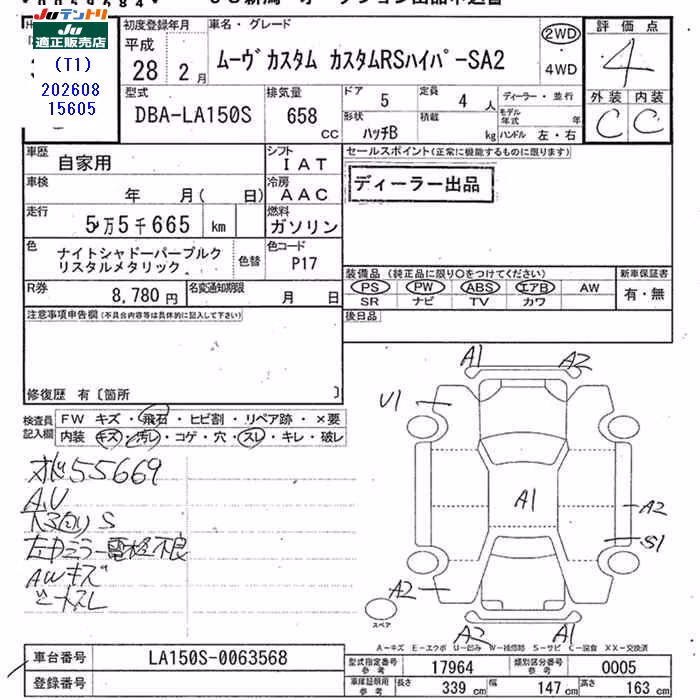 JUテントリ
JU
適正販売店
(T1)
202608
15605
初度登録年月
平成
28年 2月
車名・グレード
ムーヴカスタム カスタムRSハイパーSA2
2WD
・
4WD
評価点
4
外装 内装
C C
型式
DBA-LA150S
排気量
658
CC
ドア 5
定員 4 人
形状 ハッチB
積載 kg
ディーラー・並行
モデル年式 年
ハンドル 左・右
車歴
自家用
シフト
IAT
車検
年 月( 日)
冷房
AAC
走行
5万5千665 km
燃料
ガソリン
色
ナイトシャドーパープルク
リスタルメタリック
色替
色コード
P17
R券
8,780 円
名変通知期限
月 日
セールスポイント(正常に機能するものに限ります)
ディーラー出品
装備品(純正品に限り○をつけてください)
新車保証書
PS PW ABS エアB AW
SR ナビ TV カワ
有・無
後日品
注意事項申告欄(不具合内容等は具体的に記入して下さい)
修復歴 有〔箇所 〕
検査員
記入欄
FW キズ・飛石・ヒビ割・リペア跡・×要
内装 キズ・汚レ・コゲ・穴・スレ・キレ・破レ
55669
AU
S
左ドアミラー電格不良
AWキズ
シートスレ
A1 A2
U1
A1
A2
S1
A2
A2 A1
スペア
A-キズ E-エクボ U-凹み W-補修跡 S-サビ C-腐食 XX-交換済
車台番号
LA150S-0063568
登録番号
型式指定番号
参考
17964
類別区分番号
参考
0005
車庫証明用
参考
長さ 339 cm
幅 147 cm
高さ 163 cm